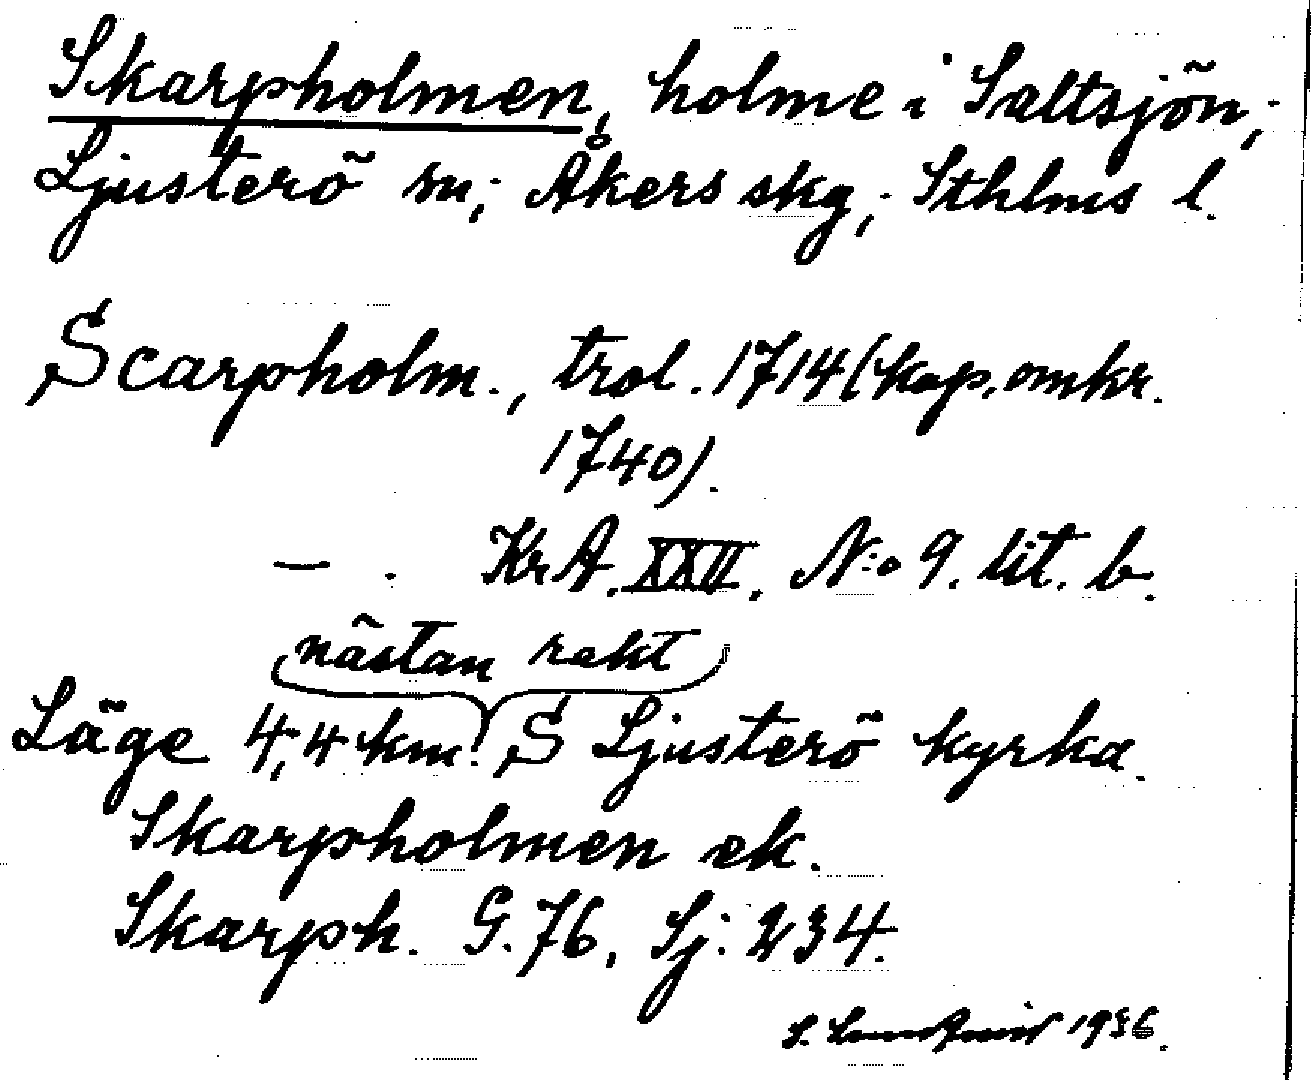 Skarpholmen, holme i Saltsjön,
Ljusterö sn, Åkers skg, Sthlms l.
Scarpholm., trol. 1714 (kop. omkr.
1740).
— . Kr A. XXII. N:o 9. lit. b.
nästan rakt
Läge 4,4 km. S Ljusterö kyrka.
Skarpholmen ek.
Skarph. G. 76, Sj: 234.
1936.